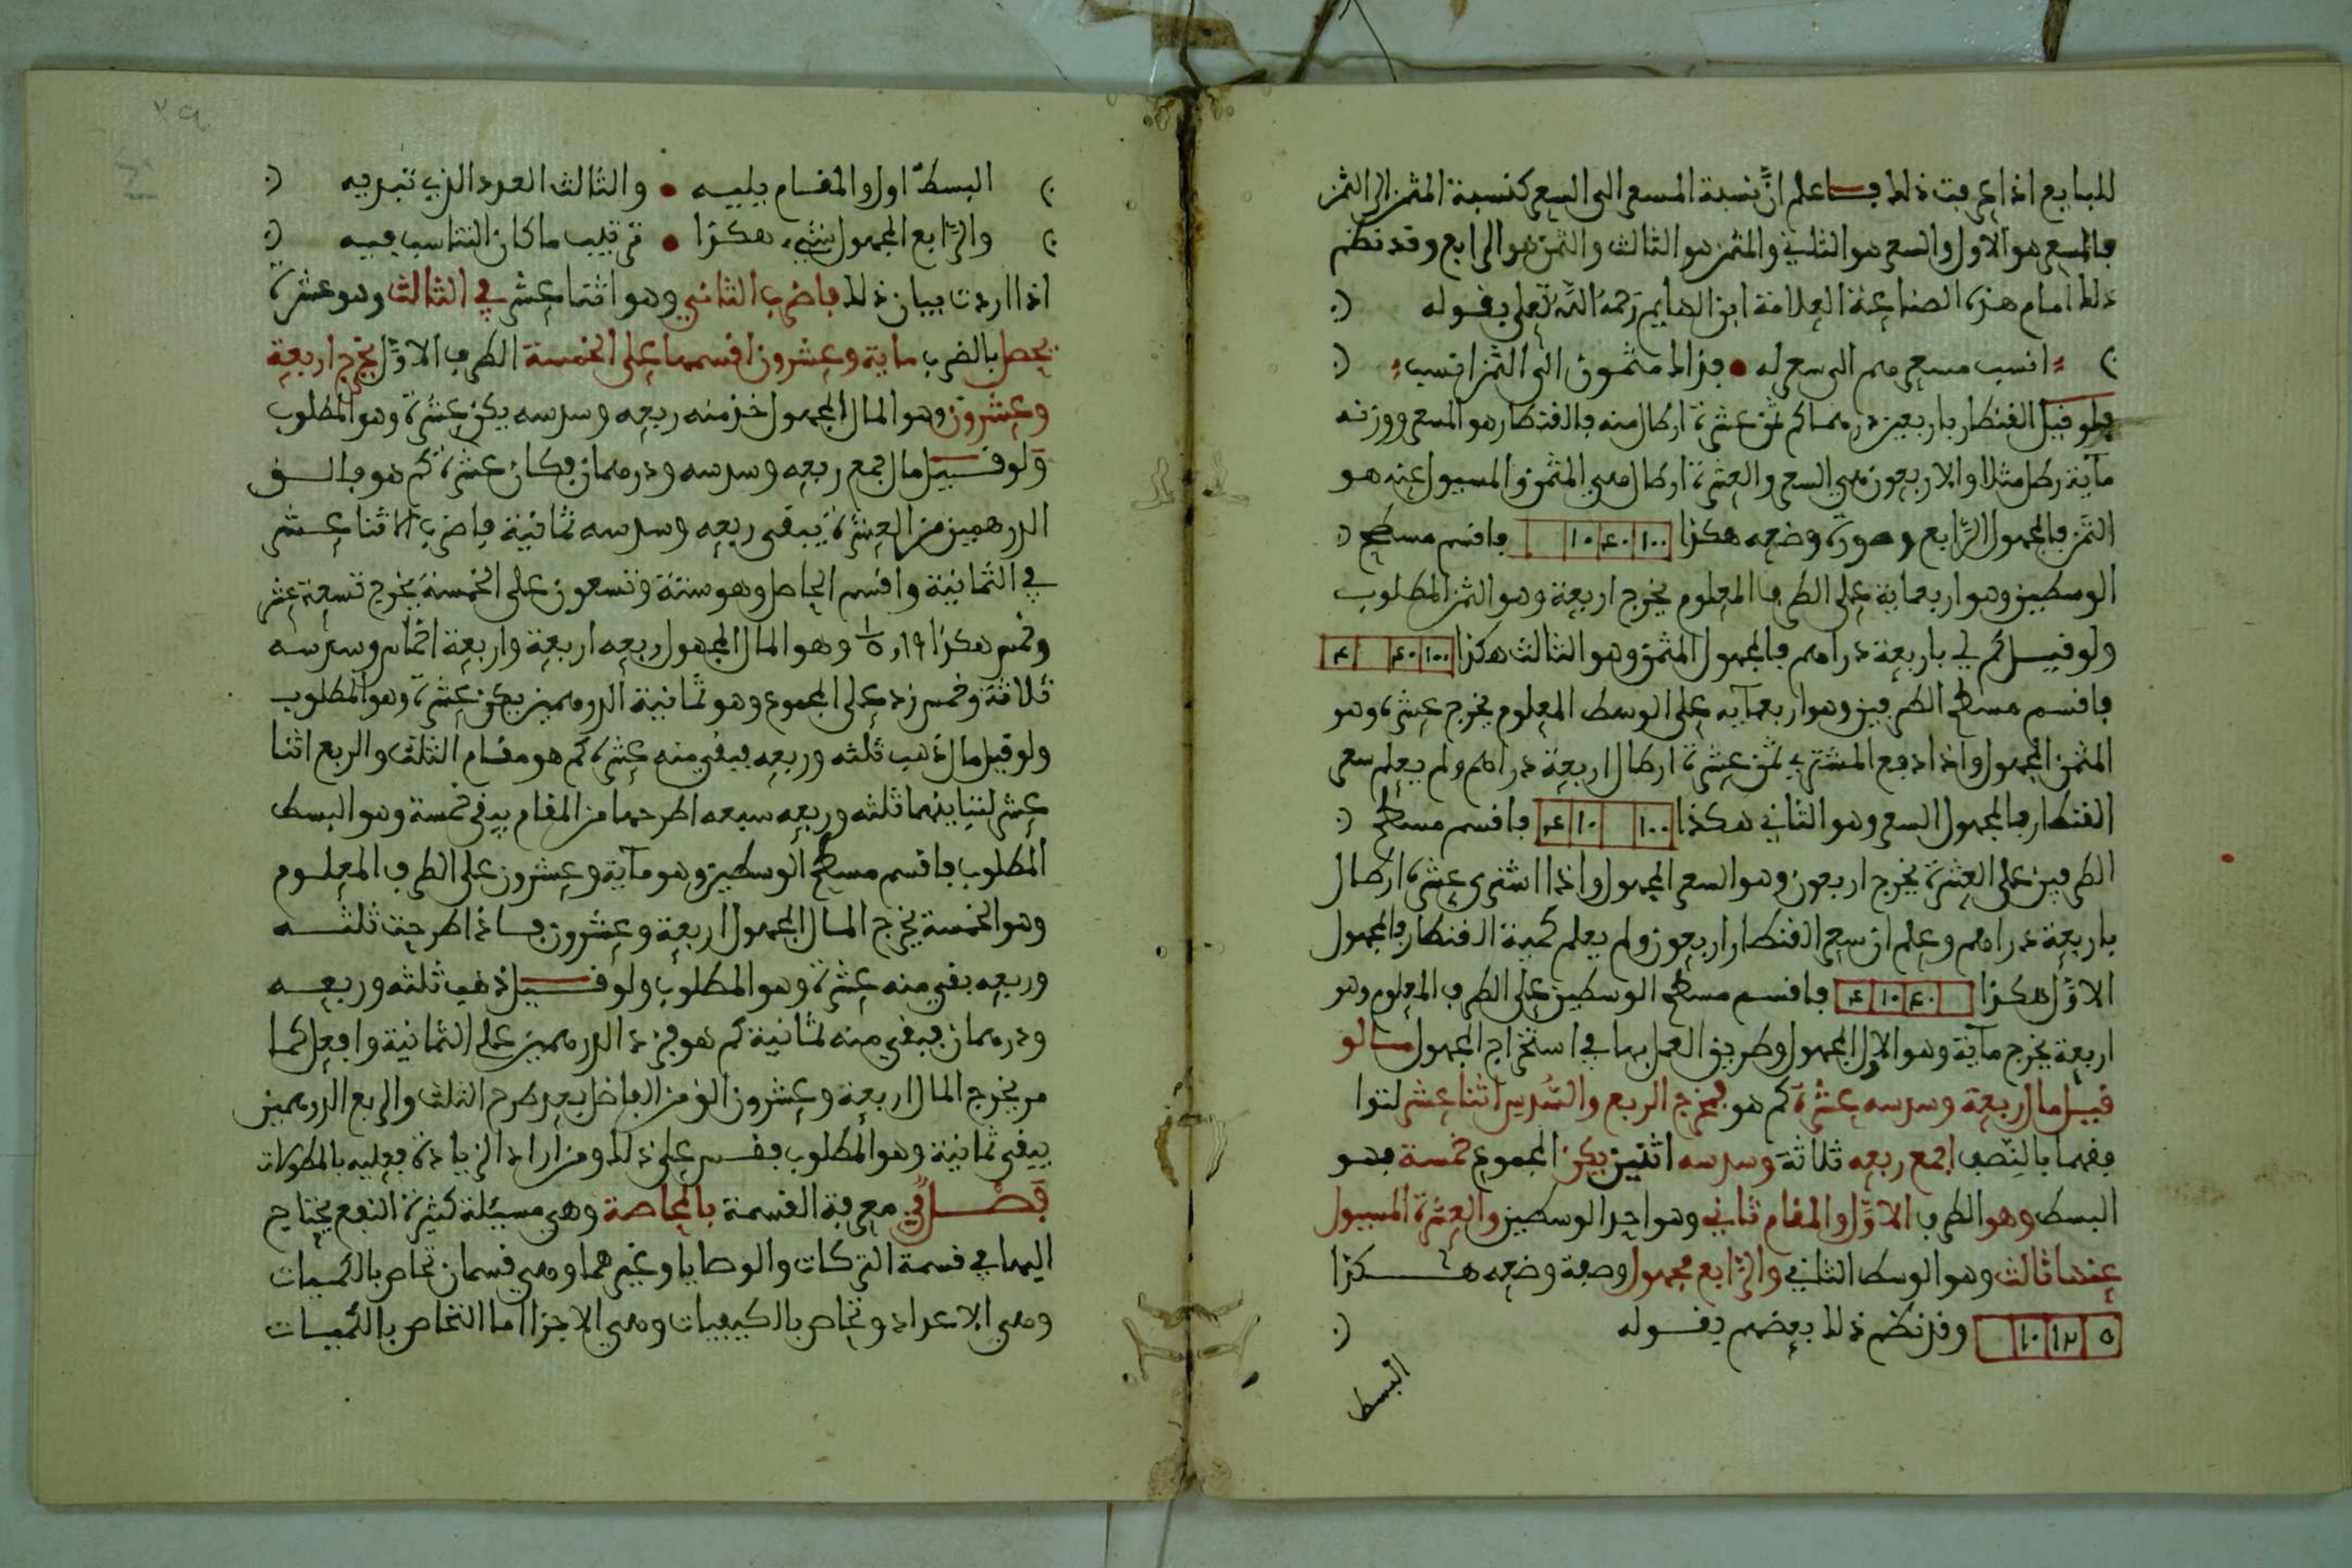 للبايع اذا عرفت ذلك فاعلم ان نسبة المسعر الى السعر كنسبة المثمن الى الثمن
فالمسعر هو الاول والسعر هو الثاني والمثمن هو الثالث والثمن هو الرابع وقد نظم
ذلك امام هذه الصناعة العلامة ابن الهايم رحمه الله تعلى بقوله
انسب مسعرهم الى سعر له • فذاك مثمون الى الثمن انتسب
فلو قيل القنطار باربعين درهما كم ثمن عشرة ارطال منه فالقنطار هو المسعر ووزنه
ماية رطل مثلا والاربعون هي السعر والعشرة ارطال هي المثمن والمسيول عنه هو
الثمن فالمجهول الرابع وصورة وضعه هكذا ١٠٠ ٤٠ ١٠ فاقسم مسطح
الوسطين وهو اربعماية على الطرف المعلوم يخرج اربعة وهو الثمن المطلوب
ولو قيل كم لي باربعة دراهم فالمجهول المثمن وهو الثالث هكذا ١٠٠ ٤٠ ٤
فاقسم مسطح الطرفين وهو اربعمآيه على الوسط المعلوم يخرج عشرة وهو
المثمن المجهول واذا دفع المشتري ثمن عشرة ارطال اربعة دراهم ولم يعلم سعر
القنطار فالمجهول السعر وهو الثاني هكذا ١٠٠ ١٠ ٤ فاقسم مسطح
الطرفين على العشرة يخرج اربعون وهو السعر المجهول واذا اشترى عشرة ارطال
باربعة دراهم وعلم ان سعر القنطار اربعون ولم يعلم كمية القنطار فالمجهول
الاول هكذا ٤٠ ١٠ ٤ فاقسم مسطح الوسطين على الطرف المعلوم وهو
اربعة يخرج مآية وهو الاول المجهول وطريق العمل بها في استخراج المجهول مالو
قيل مال ربعه وسدسه عشرة كم هو فمخرج الربع والسدس اثنا عشر لتوا
فقهما بالنصف اجمع ربعه ثلاثة وسدسه اثنين يكن المجموع خمسة فهو
البسط وهو الطرف الاول والمقام ثاني وهو احد الوسطين والعشرة المسيول
عنها ثالث وهو الوسط الثاني والرابع مجهول وصفة وضعه هكذا
٥ ١٢ ١٠ وقد نظم ذلك بعضهم بقوله
البسط
البسط اول والمقام يليه • والثالث العدد الذي تبديه
والرابع المجهول شيء هكذا • ترتيب ما كان التناسب فيه
اذا اردت بيان ذلك فاضرب الثاني وهو اثنا عشر في الثالث وهو عشرة
يحصل بالضرب ماية وعشرون اقسمها على الخمسة الطرف الاول يخرج اربعة
وعشرون وهو المال المجهول خذ منه ربعه وسدسه يكن عشرة وهو المطلوب
ولو قيل مال جمع ربعه وسدسه ودرهمان فكان عشرة كم هو فالق
الدرهمين من العشرة يبقى ربعه وسدسه ثمانية فاضرب الاثنا عشر
في الثمانية واقسم الحاصل وهو ستة وتسعون على الخمسة يخرج تسعة عشر
وخمس هكذا ١٩ و ١/٥ وهو المال المجهول ربعه اربعة واربعة اخماس وسدسه
ثلاثة وخمس زد على المجموع وهو ثمانية الدرهمين يكن عشرة وهو المطلوب
ولو قيل مال ذهب ثلثه وربعه فبقي منه عشرة كم هو مقام الثلث والربع اثنا
عشر لتباينهما ثلثه وربعه سبعه اطرحها من المقام يبقى خمسة وهو البسط
المطلوب فاقسم مسطح الوسطين وهو مآية وعشرون على الطرف المعلوم
وهو الخمسة يخرج المال المجهول اربعة وعشرون فاذا طرحت ثلثه
وربعه بقي منه عشرة وهو المطلوب ولو قيل ذهب ثلثه وربعه
ودرهمان فبقي منه ثمانية كم هو فزد الدرهمين على الثمانية وافعل كما
مر يخرج المال اربعة وعشرون الق من الفاضل بعد طرح الثلث والربع الدرهمين
يبقى ثمانية وهو المطلوب فقس على ذلك ومن اراد الزيادة فعليه بالمطولات
فصل في معرفة القسمة بالمحاصة وهي مسيلة كثيرة النفع يحتاج
اليها في قسمة التركات والوصايا وغيرهما وهي قسمان تحاص بالكميات
وهي الاعداد وتحاص بالكيفيات وهي الاجزا اما التحاص بالكميات